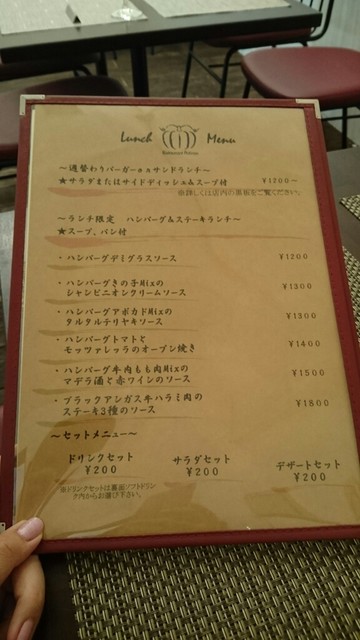 Lunch Menu
～週替わりバーガーorサンドランチ～
★サラダまたはサイドディッシュ&スープ付 ¥1200～
※詳しくは店内の黒板をご覧ください。
～ランチ限定 ハンバーグ&ステーキランチ～
★スープ、パン付
・ハンバーグデミグラスソース ¥1200
・ハンバーグきの子Mixの
シャンピニオンクリームソース ¥1300
・ハンバーグアボカドMixの
タルタルテリヤキソース ¥1300
・ハンバーグトマトと
モッツァレッラのオーブン焼き ¥1400
・ハンバーグ牛肉もも肉Mixの
マデラ酒と赤ワインのソース ¥1500
・ブラックアンガス牛ハラミ肉の
ステーキ3種のソース ¥1800
～セットメニュー～
ドリンクセット サラダセット デザートセット
¥200 ¥200 ¥200
※ドリンクセットは裏面ソフトドリン
ク内からお選び下さい。